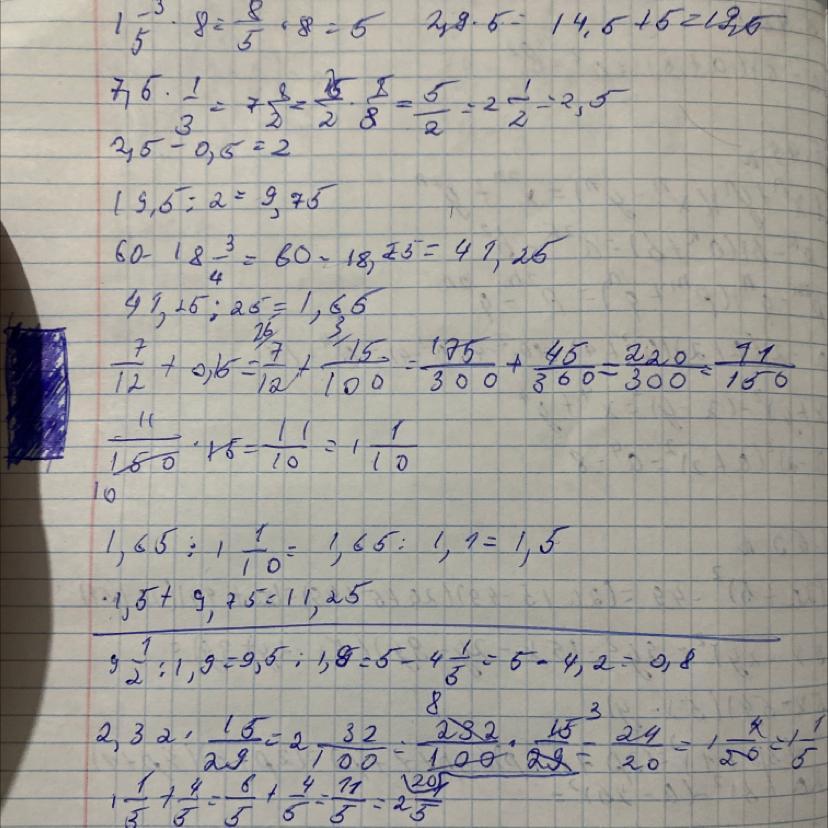 1 3/5 · 8 = 8/5 · 8 = 5 2,9 · 5 = 14,5 + 5 = 19,5
7,5 · 1/3 = 7 = 15/2 · = 5/2 = 2 1/2 = 2,5
2,5 - 0,5 = 2
19,5 : 2 = 9,75
60 - 18 3/4 = 60 - 18,75 = 41,25
41,25 : 25 = 1,65
7/12 + 0,15 = 7/12 + 15/100 = 175/300 + 45/300 = 220/300 = 11/150
11/150 · 15 = 11/10 = 1 1/10
10
1,65 : 1 1/10 = 1,65 : 1,1 = 1,5
1,5 + 9,75 = 11,25
9 1/2 : 1,9 = 9,5 : 1,9 = 5 - 4 1/5 = 5 - 4,2 = 0,8
2,32 · 15/29 = 2 32/100 = 232/100 · 15/29 = 24/20 = 1 4/20 = 1 1/5
1 1/5 + 4/5 = 6/5 + 4/5 = 11/5 = 2